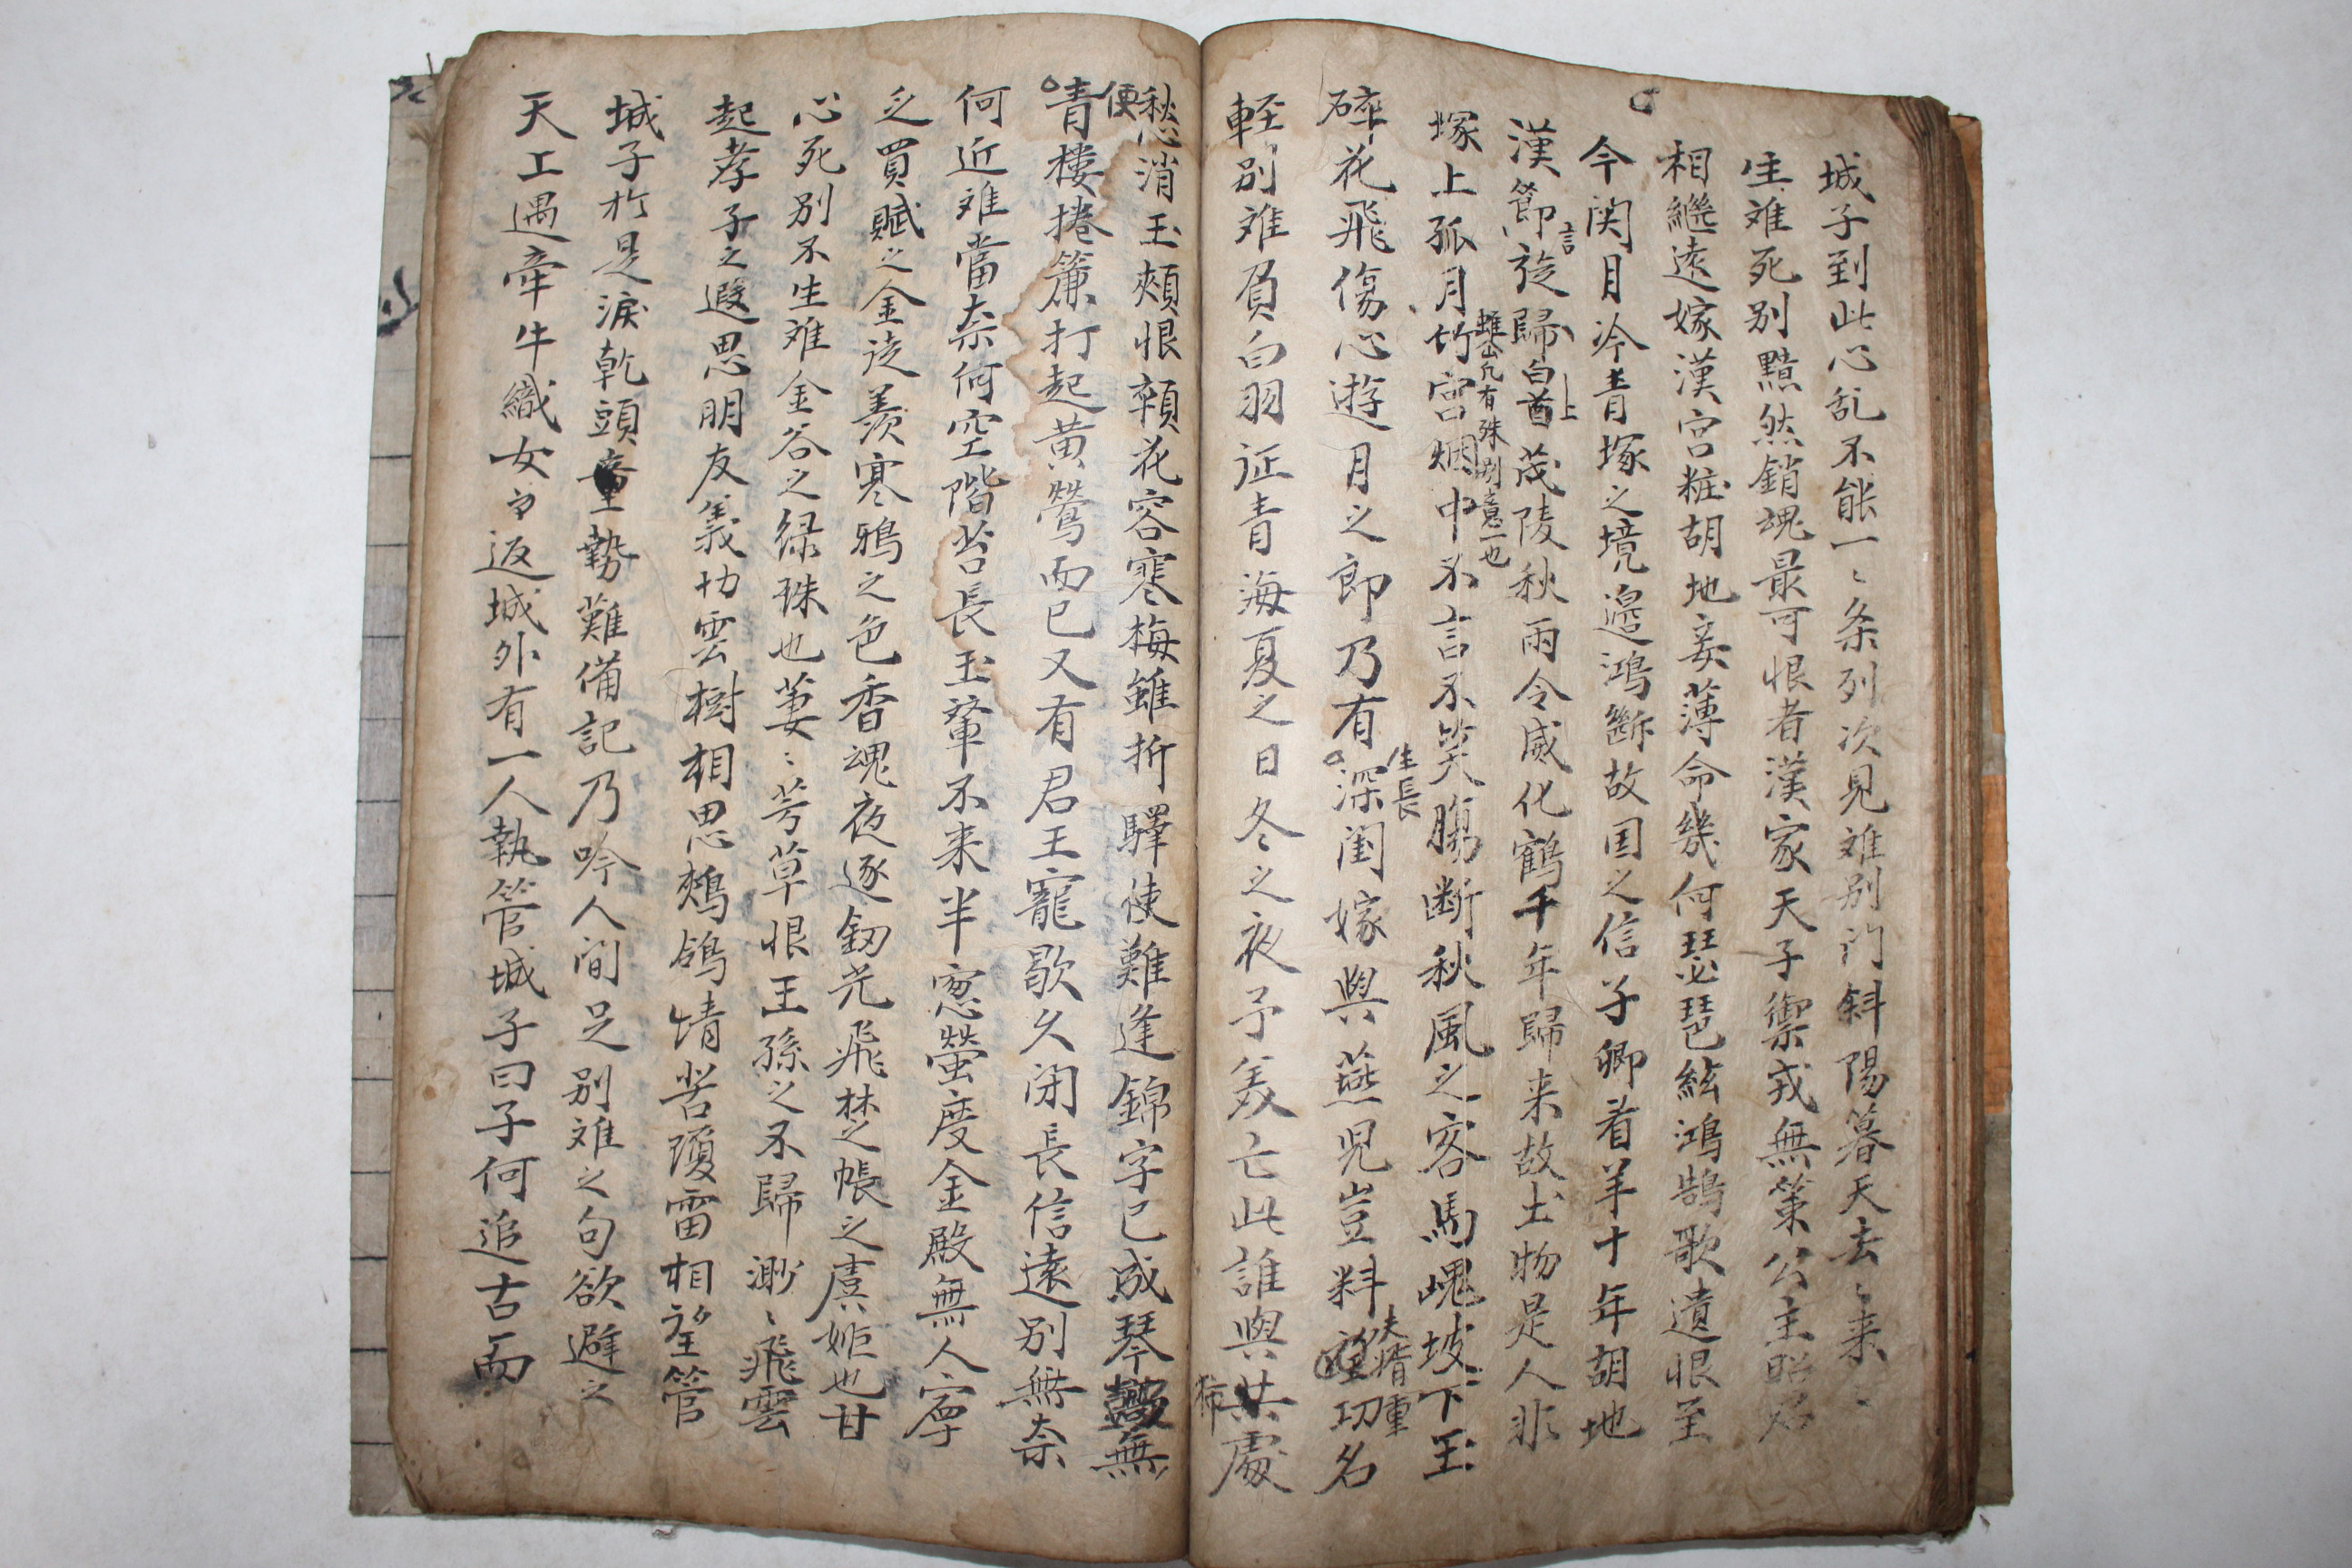 城子到此心乱不能一〻条列次見难别门斜陽暮天去〻来〻
生难死别黯然銷魂最可恨者漢家天子禦戎無策公主昭君
相繼遠嫁漢宮粧胡地妾薄命幾何琵琶絃鴻鵠歌遺恨至
今関月冷青塚之境邉鴻斷故国之信子卿看羊十年胡地
漢節徒歸白首茂陵秋雨令威化鶴千年歸来故土物是人非
言
上
雖尙几有殊别意一也
塚上孤月竹宮烟中不言不笑腸断秋風之容馬嵬坡下玉
碎花飛傷心遊月之郎乃有深闺嫁與燕児豈料功名
生長
夫壻重
輕别难負白羽征青海夏之日冬之夜予美亡此誰與共處
愁消玉頰恨顇花容寒梅雖折驛使難逢錦字已成琴無
便
青樓捲簾打起黄鶯而已又有君王寵歇久闭長信遠别無奈
何近难當奈何空階苔長玉輦不来半窓螢度金殿無人寧
乏買賦之金徒羨寒鴉之色香魂夜逐釼光飛楚帳之虞姬也甘
心死别不生难金谷之緑珠也萋〻芳草恨王孫之不歸渺〻飛雲
起孝子之遐思朋友義切雲樹相思鶺鴒情苦瓊雷相望管
城子於是淚乾頭童勢難備記乃吟人间足别难之句欲避之
天工遇牽牛織女而返城外有一人執管城子曰子何追古而